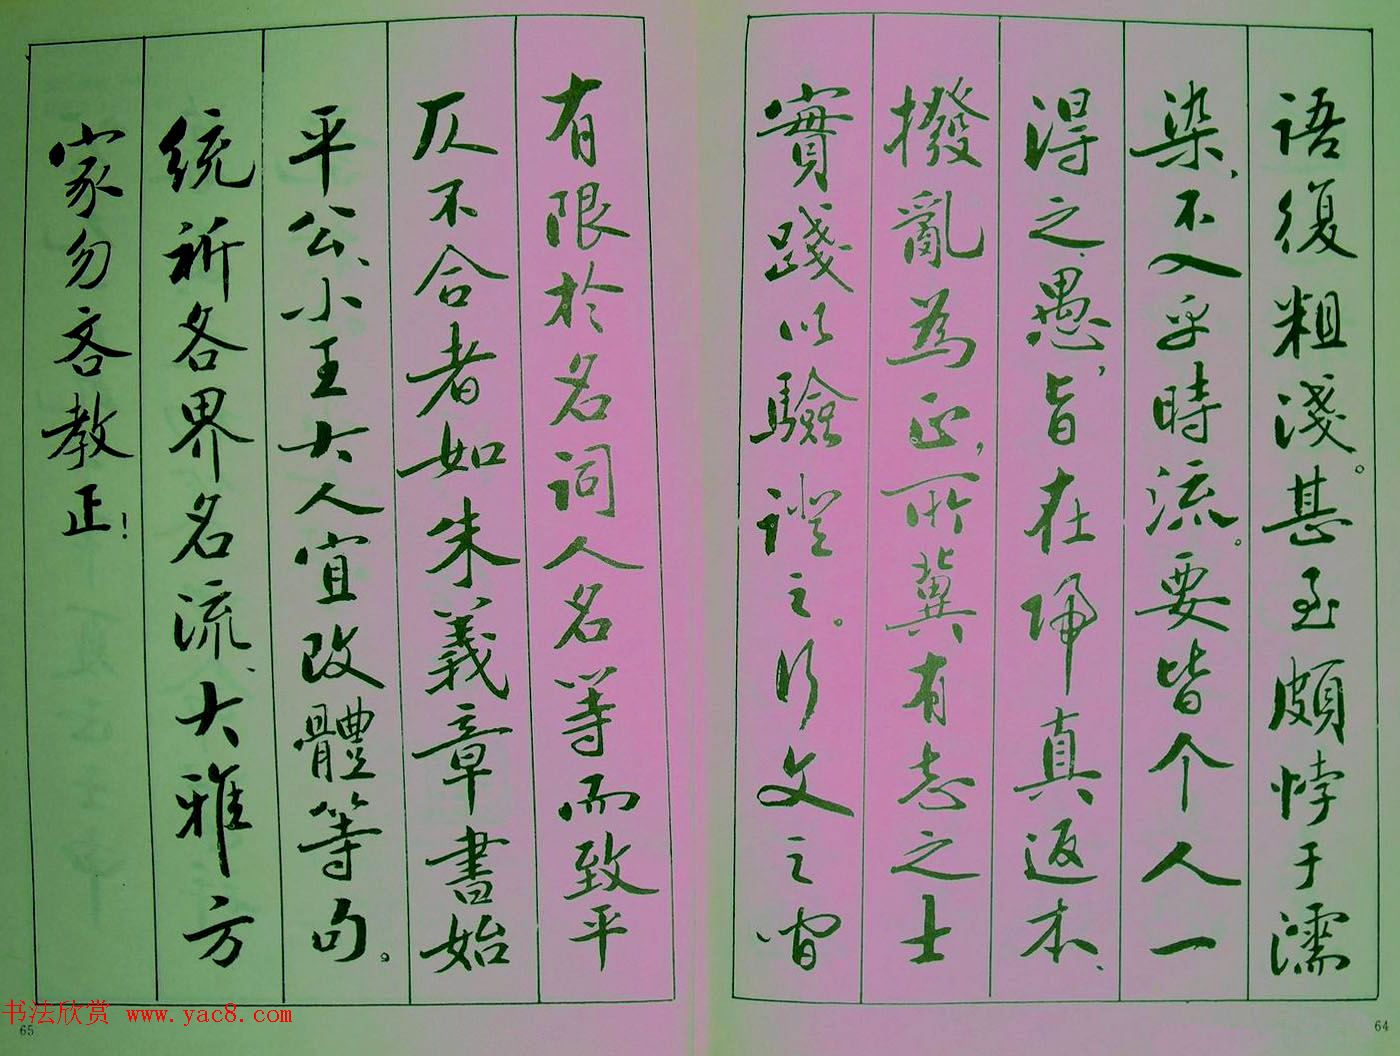 语復粗淺。甚至頗悖于濡
染，不入乎時流。要皆个人一
得之愚，旨在歸真返本、
撥亂為正，所冀有志之士
實踐以驗證之。行文之間
有限於名詞人名等而致平
仄不合者如朱義章書始
平公、小王大人宜改體等句。
统祈各界名流、大雅方
家勿吝教正！
书法欣赏 www.yac8.com
65
64